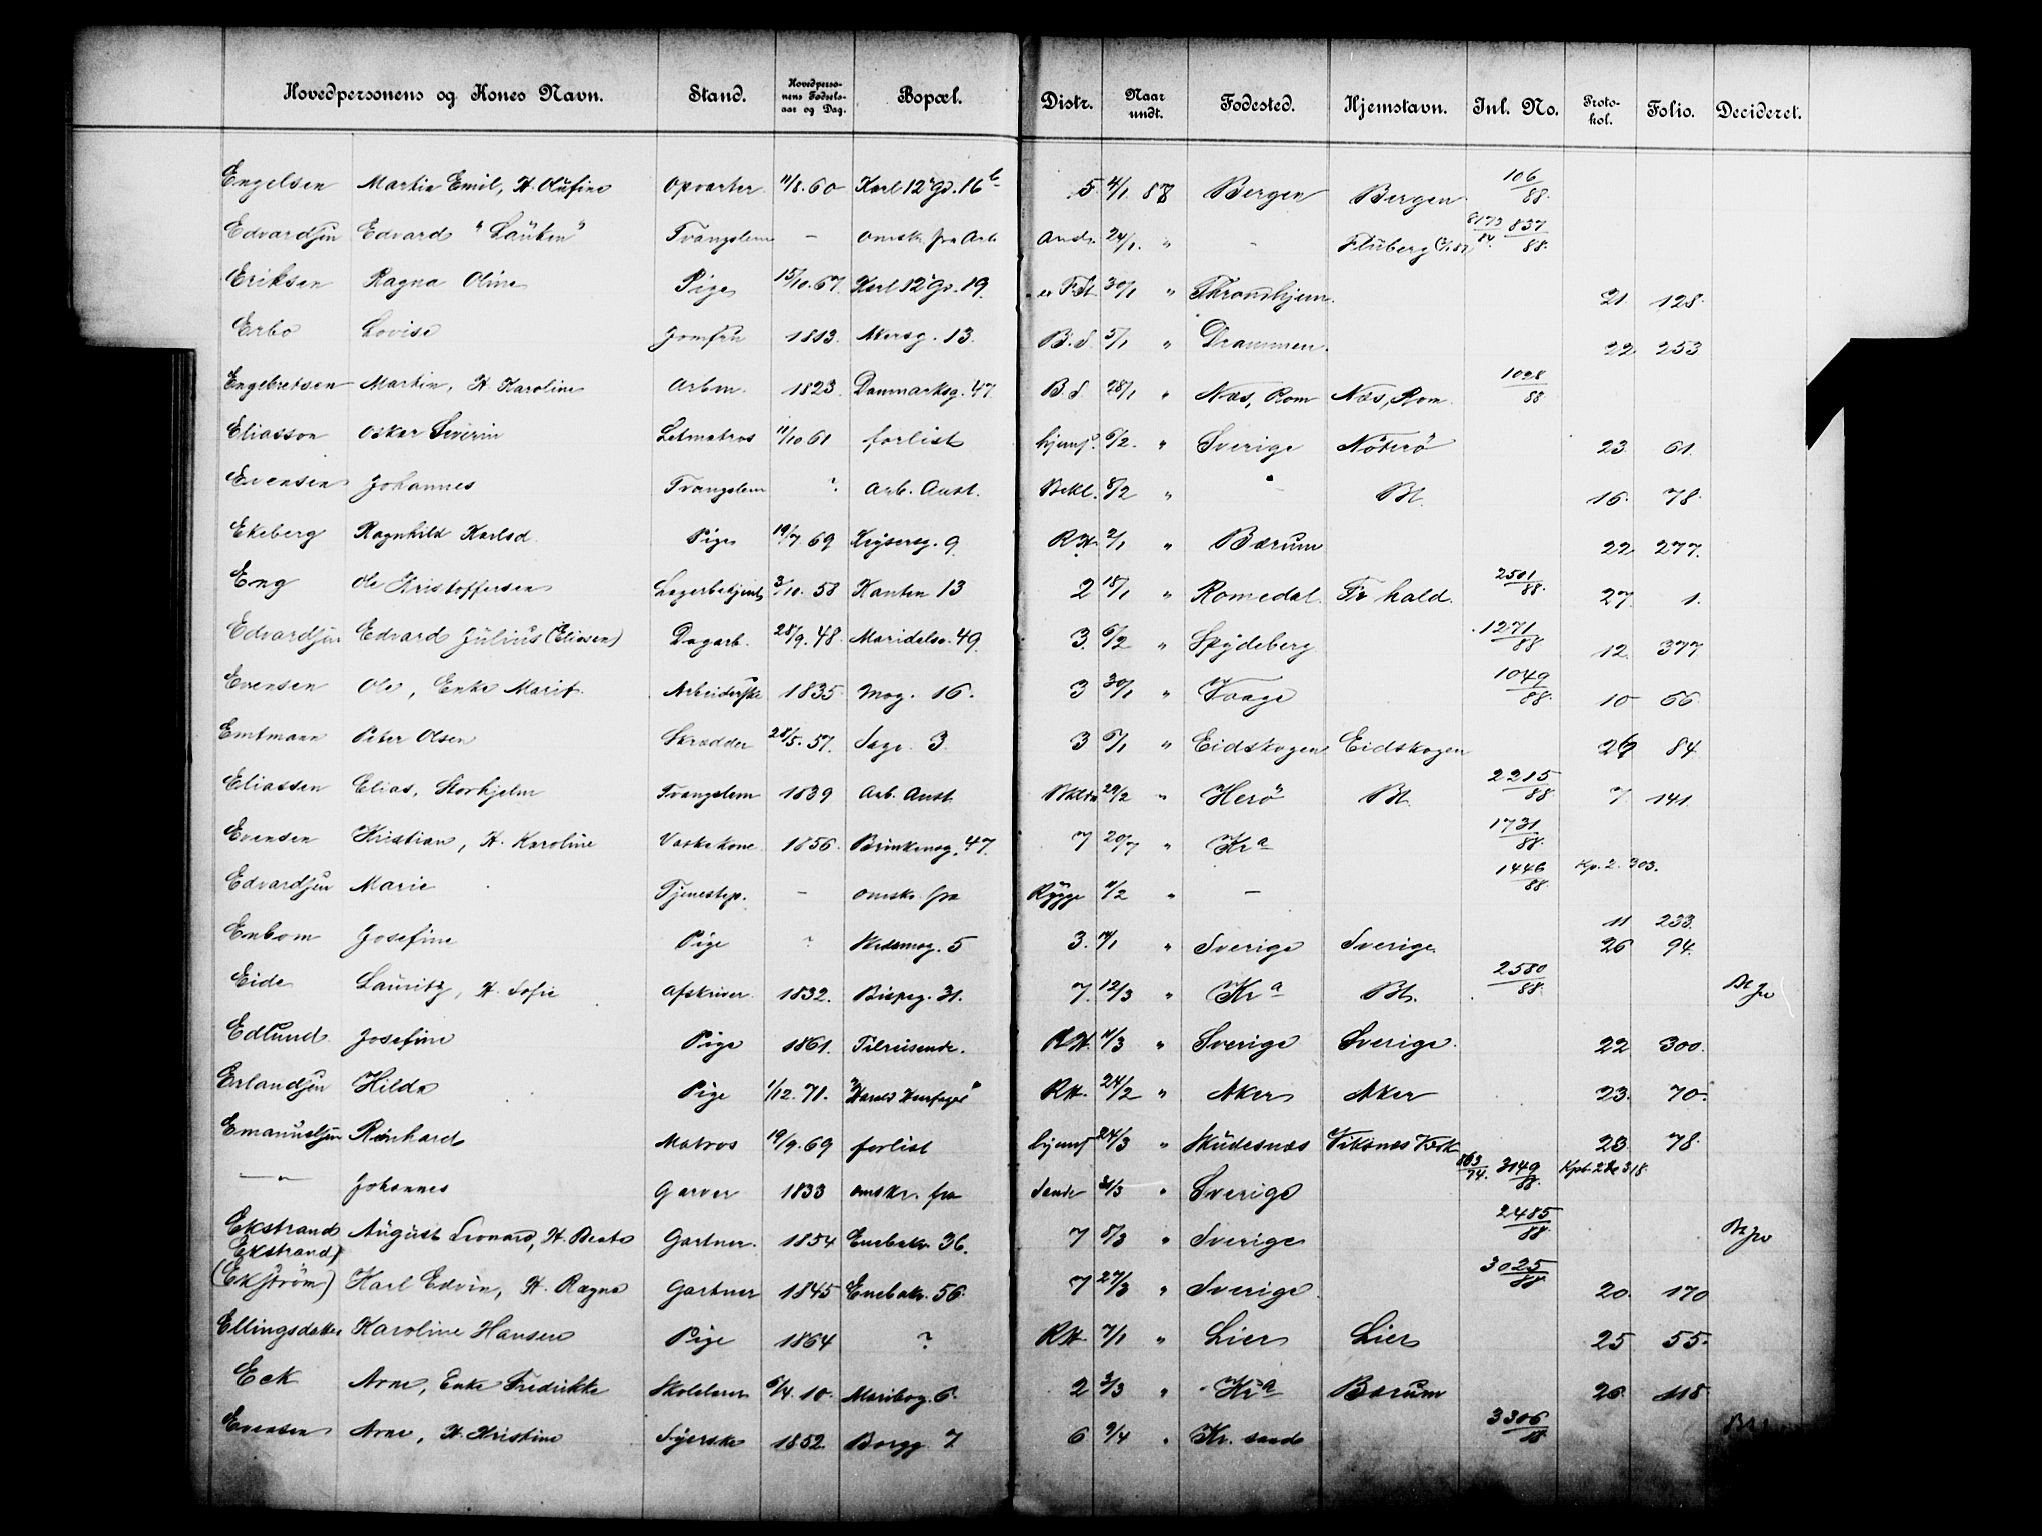 Hovedpersonens og Kones Navn. Stand. Hovedperso-nens Fødsels-aar og Dag. Bopæl. Distr. Naar undt. Fødested. Hjemstavn. Inl. No. Proto-kol. Folio. Decideret.
Engelsen Martin Emil, H. Olufine Opvarter 11/8.60 Karl 12' Gd. 16 b 5 4/1 88 Bergen Bergen 106/88.
Edvardsen Edvard "Lauken" Tvangslem - omsk. fra Arb Ands. 24/1 " - Fluberg 8173/84. 837/88.
Eriksen Ragna Oline Pige 15/10.67. Karl 12' Gd. 19. 30/1 " Throndhjem. 21. 128.
Erbo Lovise Jomfru 1813. Akersg. 13. B.d. 5/1 " Drammen. 22. 253
Engebretsen Martin, H. Karoline Arbm. 1823. Danmarksg. 47. B.d. 28/1 " Næs, Rom Næs, Rom. 1028/88
Eliasson Oskar Severin Letmatros 11/10 61 forlist hjemf. 6/2. " Sverige Nøterø 23. 61.
Evensen Johannes Tvangslem ? Arb. Anst. Bekl. 8/2 " - Bl. 16. 78.
Ekeberg Ragnhild Karlsd. Pige 19/7.69 Keysersg. 9. RH. 2/1 " Bærum 22 277.
Eng Ole Kristoffersen Lagerbetjent 3/10.58 Kanten 13 2 18/1 " Romedal Fr hald. 2501/88. 27. 1.
Edvardsen Edvard Julius (Eliasen) Dagarb. 28/9.48. Maridalsv. 49. 3. 6/2 " Spydeberg 1271/88. 12. 377.
Evensen Ole, Enke Marit. Arbeiderske 1835. Mog. 16. 3 30/1 " Vaage 1049/88. 10 66.
Emtmann Peter Olsen Skrædder 28/5.57. Sagv. 3. 3 6/1 " Eidskogen Eidskogen 26 84.
Eliassen Elias, Storhjelm Tvangslem 1839 Arb. Anst 29/2 " Herø Bl. 2215/88 7. 141.
Evensen Kristian, H. Karoline Vaskekone 1856. Brinkenog. 47. 7 20/7 " Kra 1731/88.
Edvardsen Marie Tjenestep. - omsk. fra Rygge 11/2 " - 1446/88. Kp. 2. 303.
11 233.
Enbom Josefine Pige ? Hedemog. 5 3. 14/1 " Sverige Sverige. 26 94.
Eide Lauritz, H. Sofie Afskriver. 1832. Bispeg. 31. 7. 12/3 " Kra Bl. 2580/88.
Edlund Josefine Pige 1861. Tilreisende. RH. 11/3 " Sverige Sverige. 22 300.
Erlandsen Hilda Pige 1/12.71. "Harald Haarfager" RH. 24/2 " Aker Aker 23. 70.
Emanuelsen Reinhard Matros 19/9.69 forlist hjemf 24/3 " Skudesnæs 23. 78.
— " — Johannes Garver 1833 omskr. fra Sande 31/3 " Sverige 863/74. 3149/88.
Ekstrand August Leonard, H. Beate Gartner. 1854 Enebakv. 36. 7 8/3 " Sverige 2485/88.
Ekstrand)
(Ekstrøm) Karl Edvin, H. Ragna Gartner 1845 Enebakv. 56. 7 27/3 " Sverige. 3025/88. 20. 170
Ellingsdatter Karoline Hansen Pige 1864 ? RH. 7/1 " Lier Lier 25 55.
Eck Arne, Enke Fredrikke Skolelærer 6/4.10. Maribog. 6. 2 3/3 " Kra Bærum 26. 118
Evensen Arne, H. Kristine Syerske 1852. Borgg. 7 6 9/4 " Kr. sand 3306/88